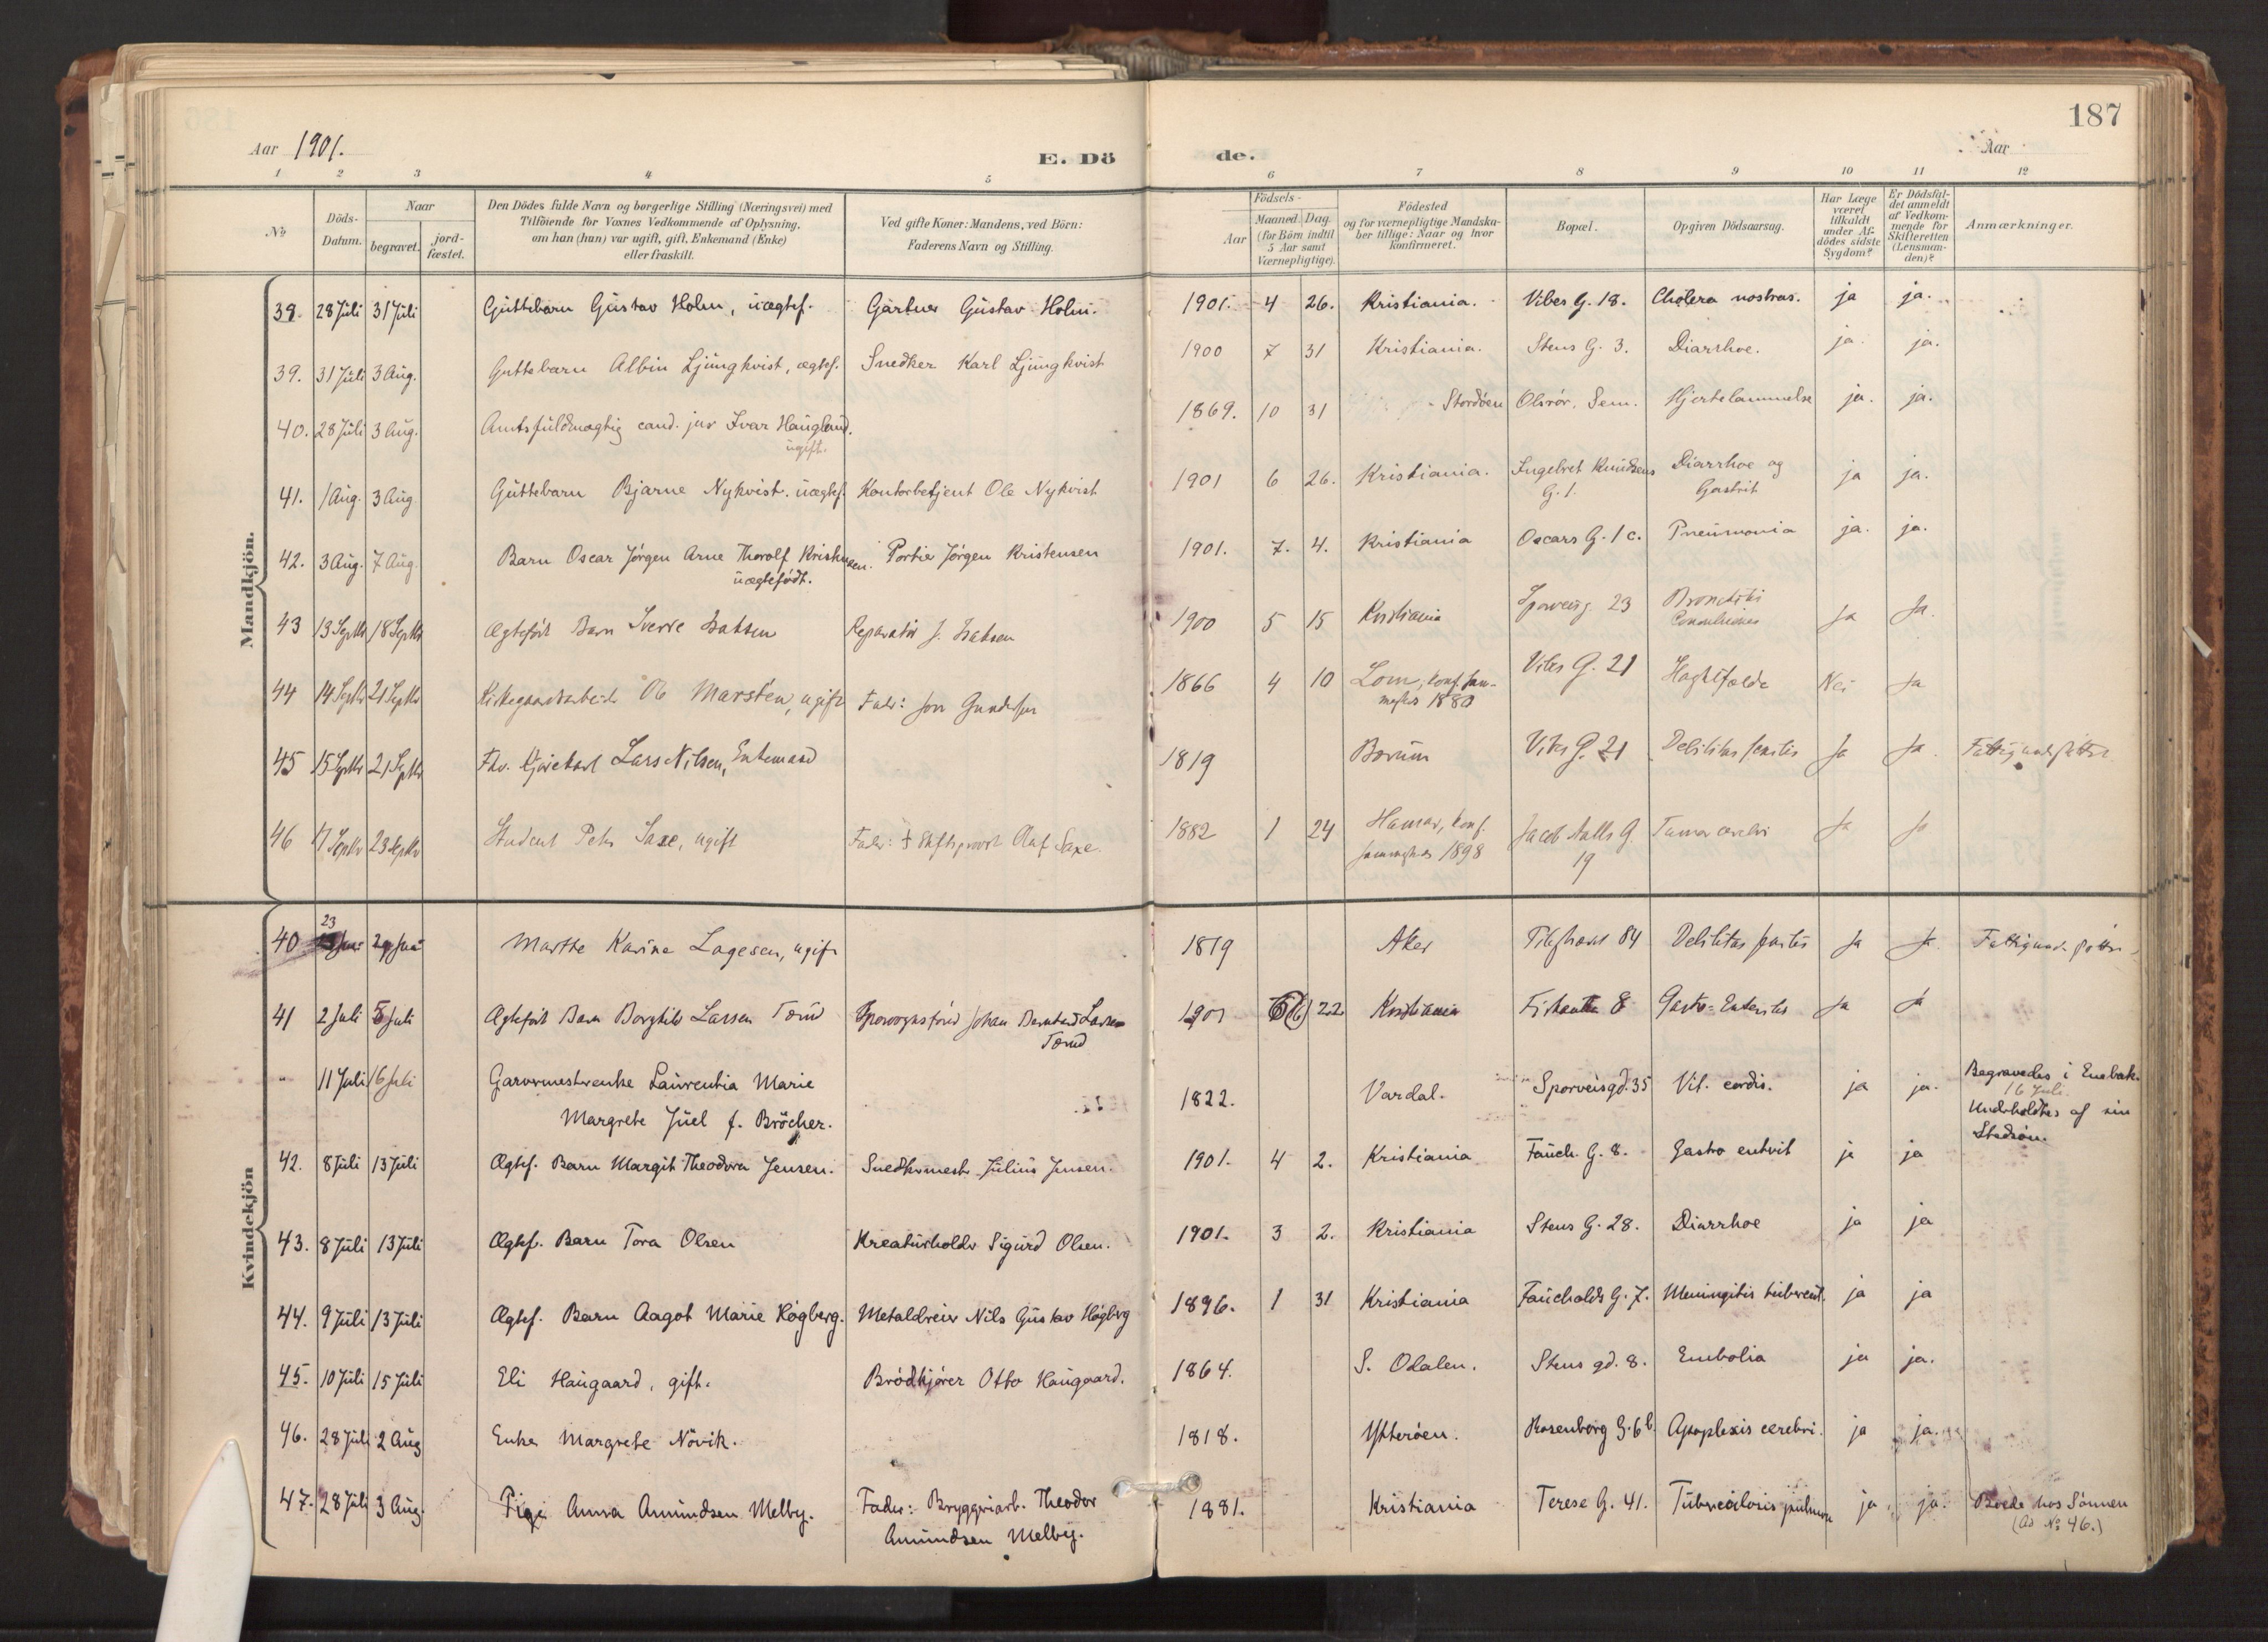 187
Aar 1901.
E. Dö
de.
Aar
1 2 3 4 5 6 7 8 9 10 11 12
No
Döds-Datum.
Naar
begravet.
jord-fæstet.
Den Dödes fulde Navn og borgerlige Stilling (Næringsvei) med
Tilföiende for Voxnes Vedkommende af Oplysning,
om han (hun) var ugift, gift, Enkemand (Enke)
eller fraskilt.
Ved gifte Koner: Mandens, ved Börn:
Faderens Navn og Stilling.
Födsels-
Aar
Maaned. Dag.
(for Börn indtil
5 Aar samt
Værnepligtige).
Födested
og for værnepligtige Mandska-
ber tillige: Naar og hvor
konfirmeret.
Bopæl.
Opgiven Dödsaarsag.
Har Læge
været
tilkaldt
under Af-
dödes sidste
Sygdom?
Er Dödsfal-
det anmeldt
af Vedkom-
mende for
Skifteretten
(Lensman-
den)?
Anmærkninger.
Mandkjön.
39. 28 Juli 31 Juli Guttebarn Gustav Holm, uægtef. Gartner Gustav Holm. 1901. 4 26. Kristiania. Vibes G. 18. Cholera nostras. ja ja.
39. 31 Juli 3 Aug. Guttebarn Albin Ljungkvist, ægtef. Snedker Karl Ljungkvist 1900 7 31 Kristiania. Stens G. 3. Diarrhoe. ja. ja.
40. 28 Juli 3 Aug. Amtsfuldmægtig cand. jur Ivar Haugland. 1869. 10 31 Stordöen Olsrör, Sem. Hjertelammelse ja. ja.
ugift.
41. 1 Aug. 3 Aug. Guttebarn Bjarne Nykvist. uægtef. Kontorbetjent Ole Nykvist 1901 6 26. Kristiania. Ingebret Knudsens Diarrhoe og ja ja.
G. 1. Gastrit
42. 3 Aug. 7 Aug. Barn Oscar Jörgen Arne Thorolf Kristensen. Portier Jörgen Kristensen 1901. 7. 4. Kristiania Oscars G. 1 c. Pneumonia ja. ja.
uægtefödt.
43 13 Septbr 18 Septbr Ægtefödt Barn Sverre Isaksen Reparatör J. Isaksen 1900 5 15 Kristiania Sporveisg. 23 Bronchitis Ja Ja.
44 14 Septbr 21 Septbr Kirkegaardsarbeider Ole Marsten, ugift Fader: Jon 1866 4 10 Lom, konf. sam- Vibes G. 21 Nei Ja
mesteds 1880
45 15 Septbr 21 Septbr Fhv. Kjörekarl Lars Nilsen, Enkemand 1819 Bærum Vibes G. 21 Debilitas senilis Ja Ja.
46 17 Septbr 23 Septbr Student Peter Saxe, ugift Fader: † Stiftsprovst Olaf Saxe. 1882 1 24 Hamar, konf. Jacob Aalls G. Tumor cerebri Ja Ja
sammesteds 1898 19
Kvindekjön
40 23 Juni 29 Juni Marthe Karine Lagesen, ugift 1819 Aker Pilestræd 84 Debilitas senilis Ja Ja.
41 2 Juli 5 Juli Ægtefödt Barn Borghild Larsen Torud Johan Bernhard Larsen 1901 6 (6) 22 Kristiania 8 Gastro-Enteritis Ja Ja
Torud
" 11 Juli 16 Juli Garvermesterenke Laurentia Marie 1822. Vardal. Sporveisgd. 35 Vit. cordis. ja ja. Begravedes i Enebak.
Margrete Juel f. Bröcher. 16 Juli.
Underholdtes af sin
Stedsön.
42. 8 Juli 13 Juli Ægtef. Barn Margit Theodora Jensen. Snedkermester Julius Jensen. 1901. 4 2. Kristiania Fauch. G. 8. Gastro enterit ja ja
43. 8 Juli 13 Juli Ægtef. Barn Tora Olsen Kreaturholder Sigurd Olsen. 1901. 3 2. Kristiania Stens G. 28. Diarrhoe ja ja
44. 9 Juli 13 Juli Ægtef. Barn Aagot Marie Högberg. Metaldreier Nils Gustav Högberg 1896. 1 31 Kristiania Faucholds G. 7. Meningitis tubercul. ja ja
45. 10 Juli 15 Juli Eli Haugaard, gift. Brödkjörer Otto Haugaard. 1864. S. Odalen. Stens gd. 8. Embolia ja ja.
46. 28 Juli 2 Aug Enke Margrete Növik. 1818. Ytteröen. Rosenborg G. 6 b. Apoplexis cerebri. ja ja.
47. 28 Juli 3 Aug. Pige Anna Amundsen Melby. Fader: Bryggeriarb. Theodor 1881. Kristiania Terese G. 41. Tuberculosis pulmon ja ja. Boede hos Sönnen
Amundsen Melby. (Ad No 46.)